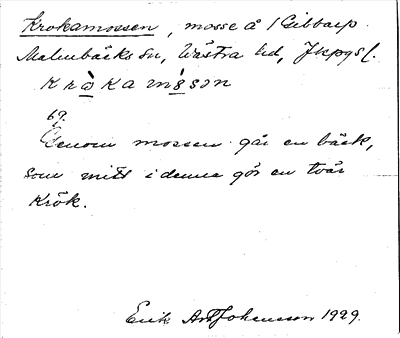 Krokamossen, mosse å 1 Gibbarp
Malmbäcks sn, Västra hd, Jkpgs l.
krò̤kamósən
69.
Genom mossen går en bäck,
som mitt i denna gör en tvär
krök.
Erik Art. Johansson 1929.